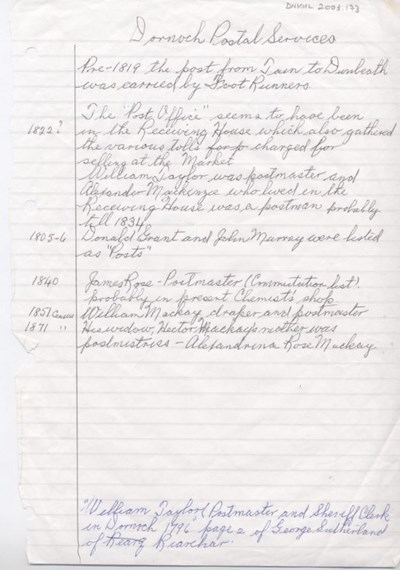 DNHHL 2003.133
Dornoch Postal Services
Pre-1819 the post from Tain to Dunbeath
was carried by Foot Runners
The "Post Office" seems to have been
1822? in the Receiving House which also gathered
the various tolls charged for
selling at the Market
William Taylor was postmaster and
Alexander Mackenzie who lived in the
Receiving House was a postman probably
till 1834
1805-6 Donald Grant and John Murray were listed
as "Posts"
1840 James Rose - Postmaster (Commutation list)
probably in present Chemist's shop
1851 Census William Mackay, draper and postmaster
1871 " His widow, Hector Mackay's mother was
postmistress - Alexandrina Rose Mackay
"William Taylor Postmaster and Sheriff Clerk
in Dornoch 1796" page 2 of George Sutherland
of Rearq Riarchar.